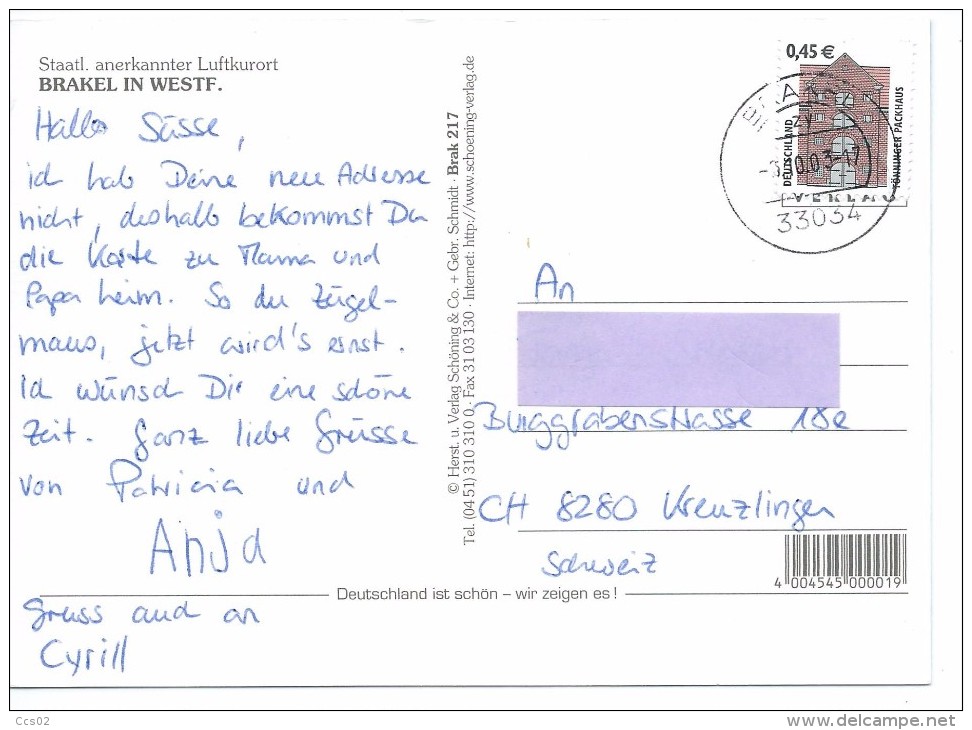 Staatl. anerkannter Luftkurort
BRAKEL IN WESTF.
Hallo Süsse,
ich hab Deine neue Adresse
nicht, deshalb bekommst Du
die Karte zu Mama und
Papa heim. So du Zügel-
maus, jetzt wird's ernst.
Ich wünsch Dir eine schöne
Zeit. Ganz liebe Grüsse
von Patricia und
Anja
Gruss auch an
Cyrill
© Herst. u. Verlag Schöning & Co. + Gebr. Schmidt · Brak 217
Tel. (04 51) 310 310 0 · Fax 31 03 130 · Internet: http://www.schoening-verlag.de
0,45 €
DEUTSCHLAND
TÖNNINGER PACKHAUS
33034
An
Burggrabenstrasse 18e
CH 8280 Kreuzlingen
Schweiz
4 004545 000019
Deutschland ist schön – wir zeigen es!
Ccs02
www.delcampe.net